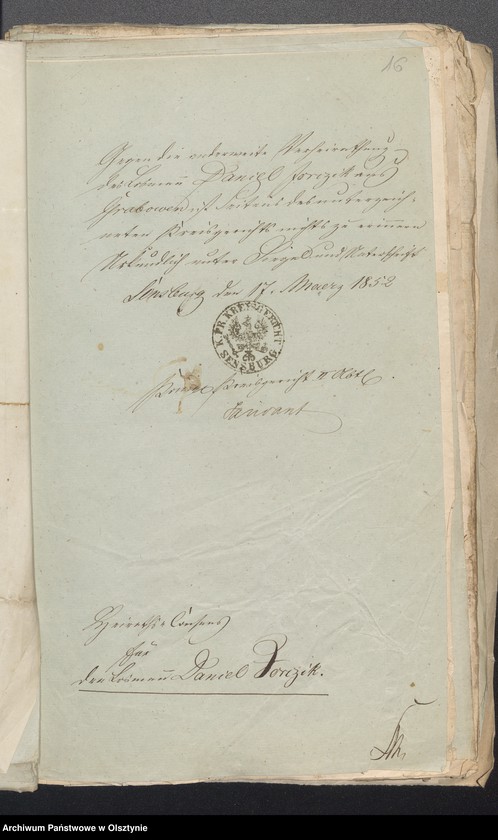 16
Gegen die anderweite Verheirathung
des Losmann Daniel Jorczik aus
Grabowen ist Seitens des unterzeich-
neten Kreisgerichts nichts zu erinnern
Urkundlich unter Siegel und Unterschrift
Sensburg den 17. Maerz 1852
K. PR. KREISGERICHT
SENSBURG
Kreisgericht II Abtl.
Heiraths-Consens
für
den Losmann Daniel Jorczik.
Archiwum Państwowe w Olsztynie